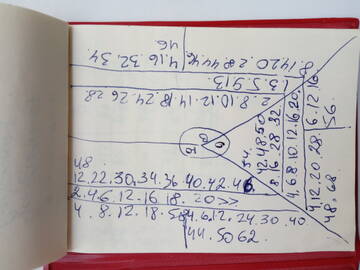 4.16.32.34
46
1.3.5.9.13.
2.8.10.12.14.18.24.26.28
48
12.22.30.34.36.40.42.46
2.4.6.12.16.18.20>>
4.8.12.18.58
4.6.12.24.30.40
44.50 62
54.
42.48.50
8.16.28.32
4.6.8.10.12.16.20.
4.12.20.28.6.12.16
56.
48.68